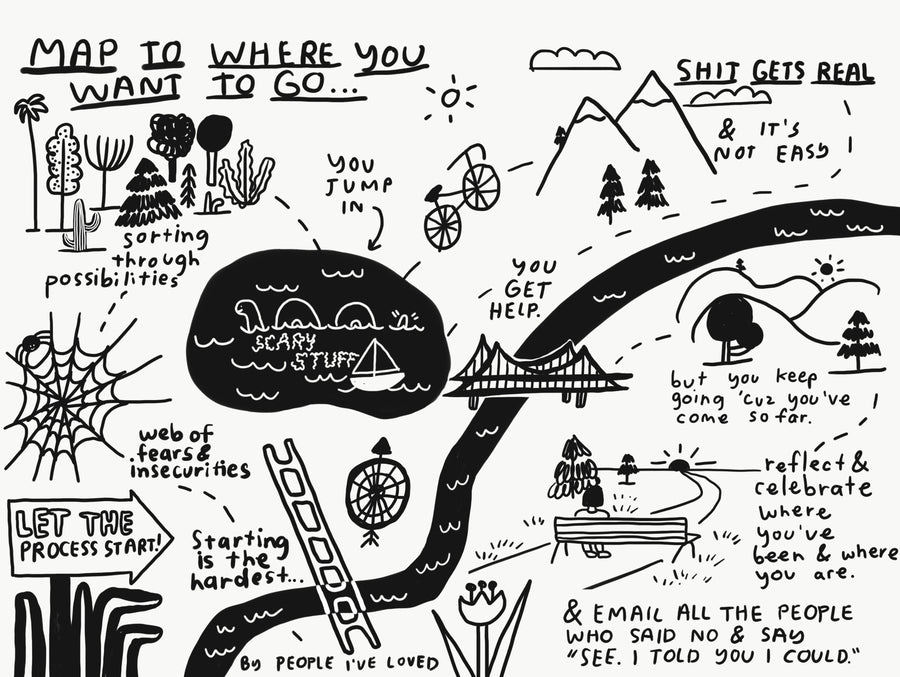 MAP TO WHERE YOU
WANT TO GO...
SHIT GETS REAL
& IT'S
NOT EASY
YOU
JUMP
IN
sorting
through
possibilities
YOU
GET
HELP.
SCARY
STUFF
but you keep
going 'cuz you've
come so far.
web of
fears &
insecurities
reflect &
celebrate
where
you've
been & where
you are.
LET THE
PROCESS START!
Starting
is the
hardest...
& EMAIL ALL THE PEOPLE
WHO SAID NO & SAY
"SEE. I TOLD YOU I COULD."
By PEOPLE I'VE LOVED